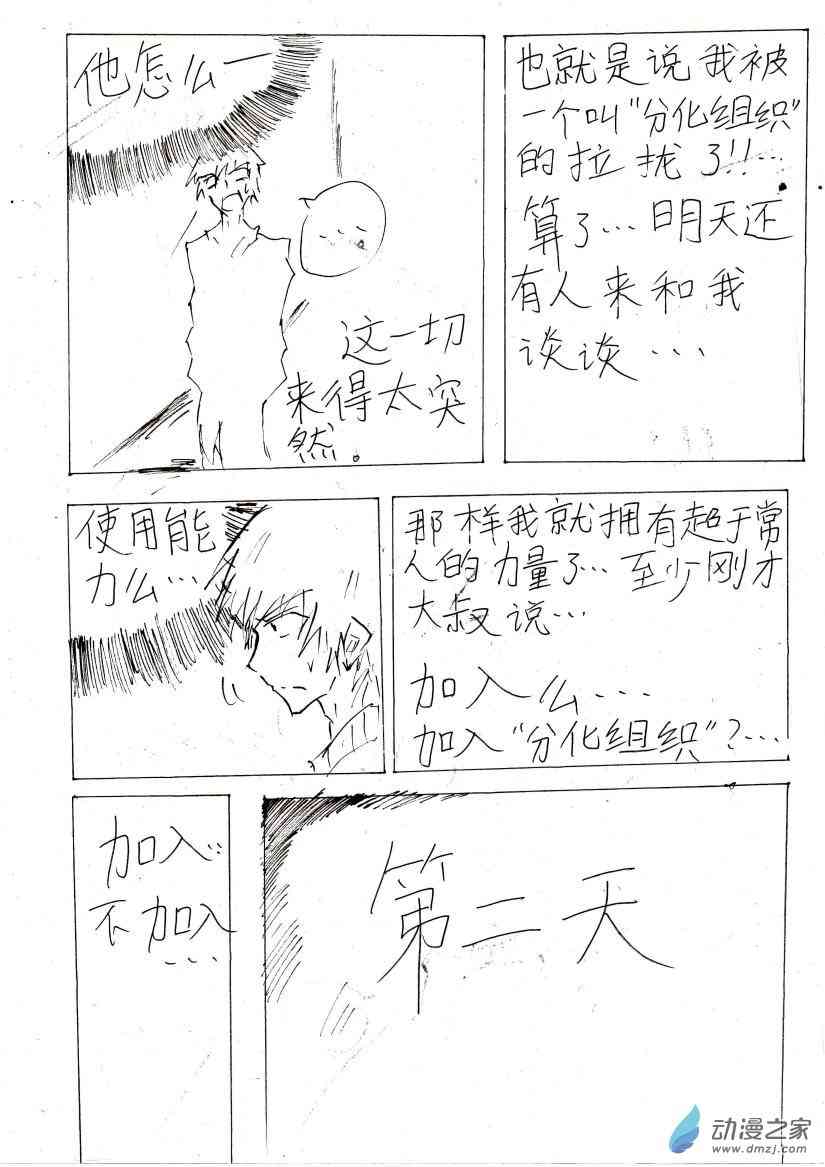 他怎么一
这一切
来得太突
然。
也就是说我被
一个叫“分化组织”
的拉拢了!!…
算了…明天还
有人来和我
谈谈…
使用能
力么…
那样我就拥有超于常
人的力量了…至少刚才
大叔说…
加入么…
加入“分化组织”?…
加入…
不加入
…
第二天
动漫之家
www.dmzj.com